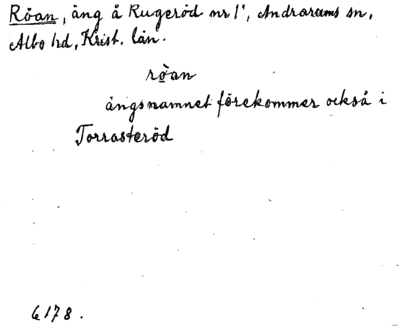 Röan, äng å Rugeröd nr 1', Andrarums sn,
Albo hd, Krist. län.
rö̀an
ängsnamnet förekommer också i
Torrasteröd
6178.